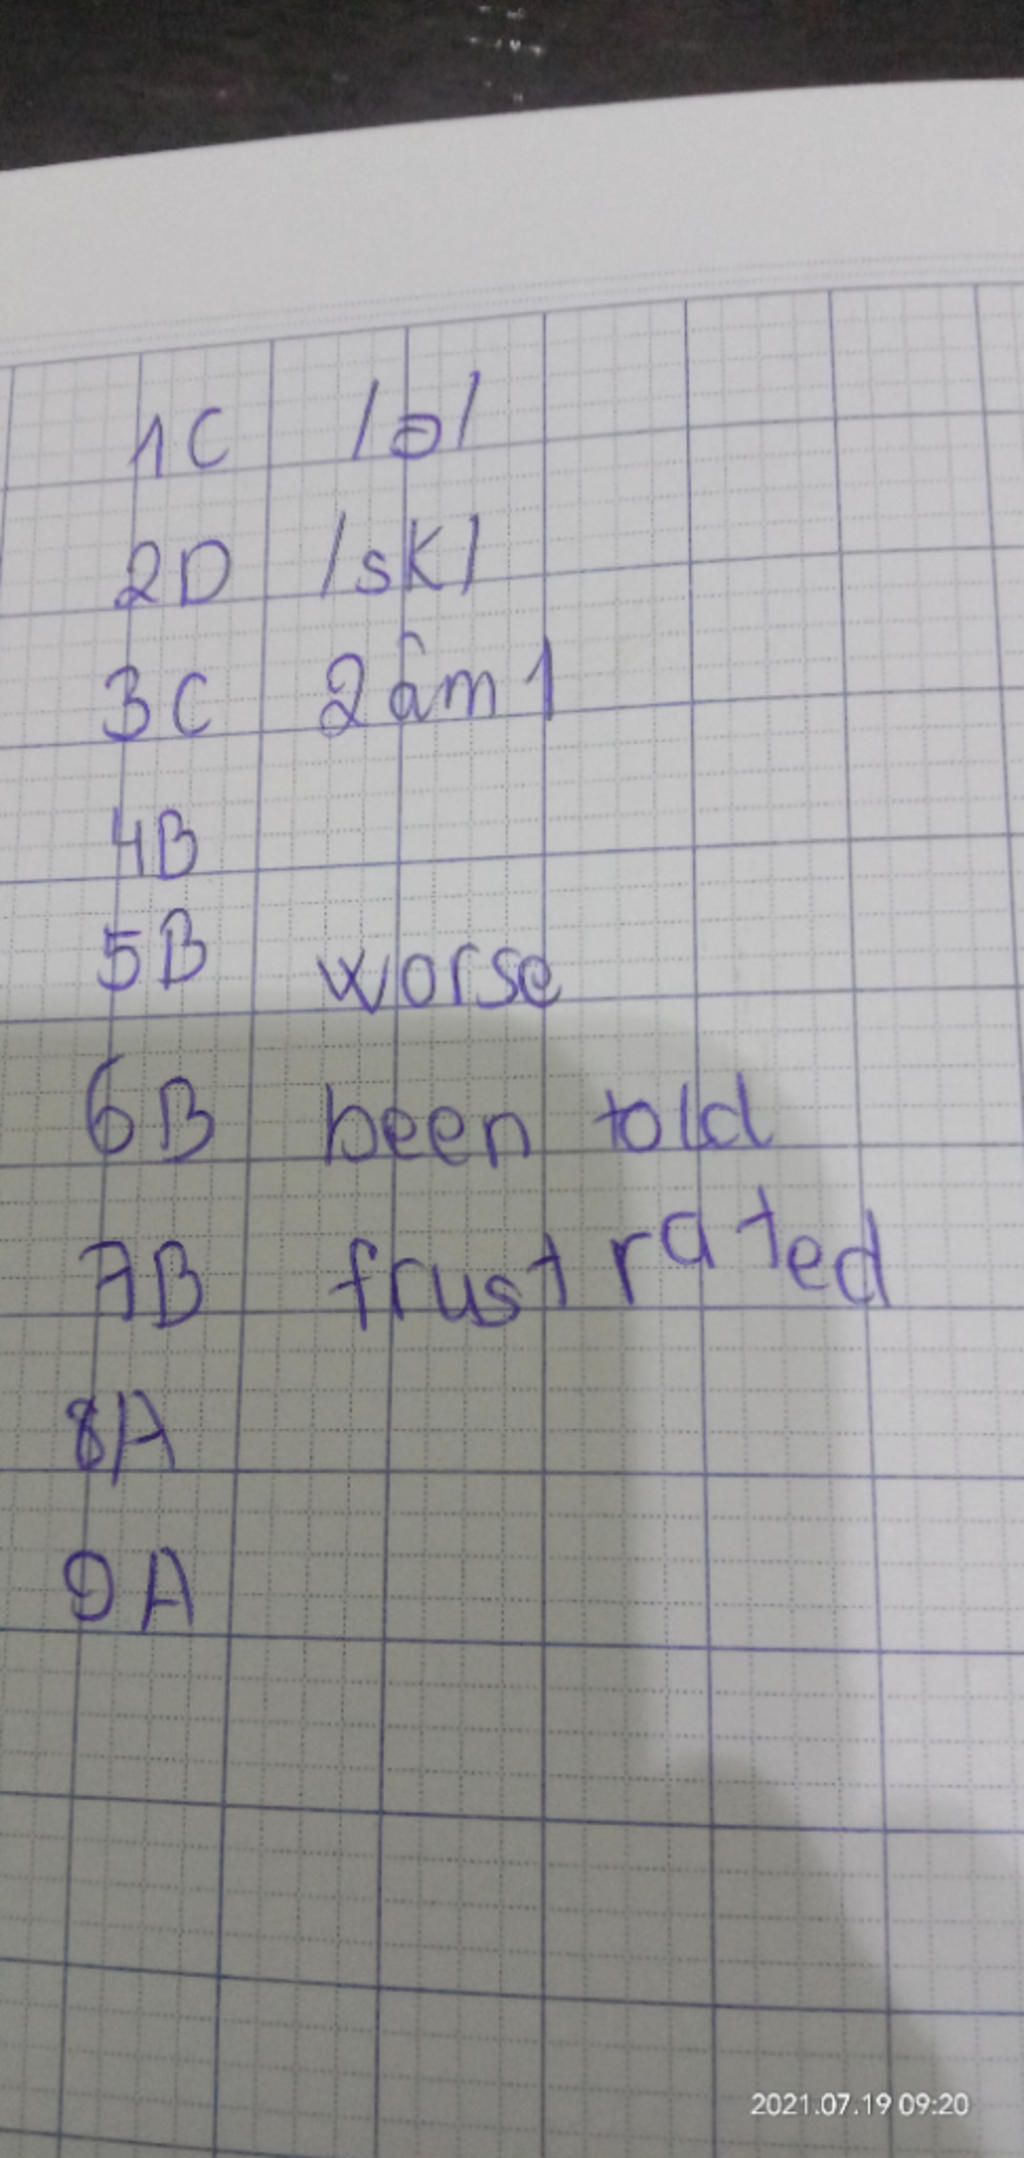 1C /ə/
2D /sk/
3C 2âm 1
4B
5B worse
6B been told
7B frustrated
8A
9A
2021.07.19 09:20